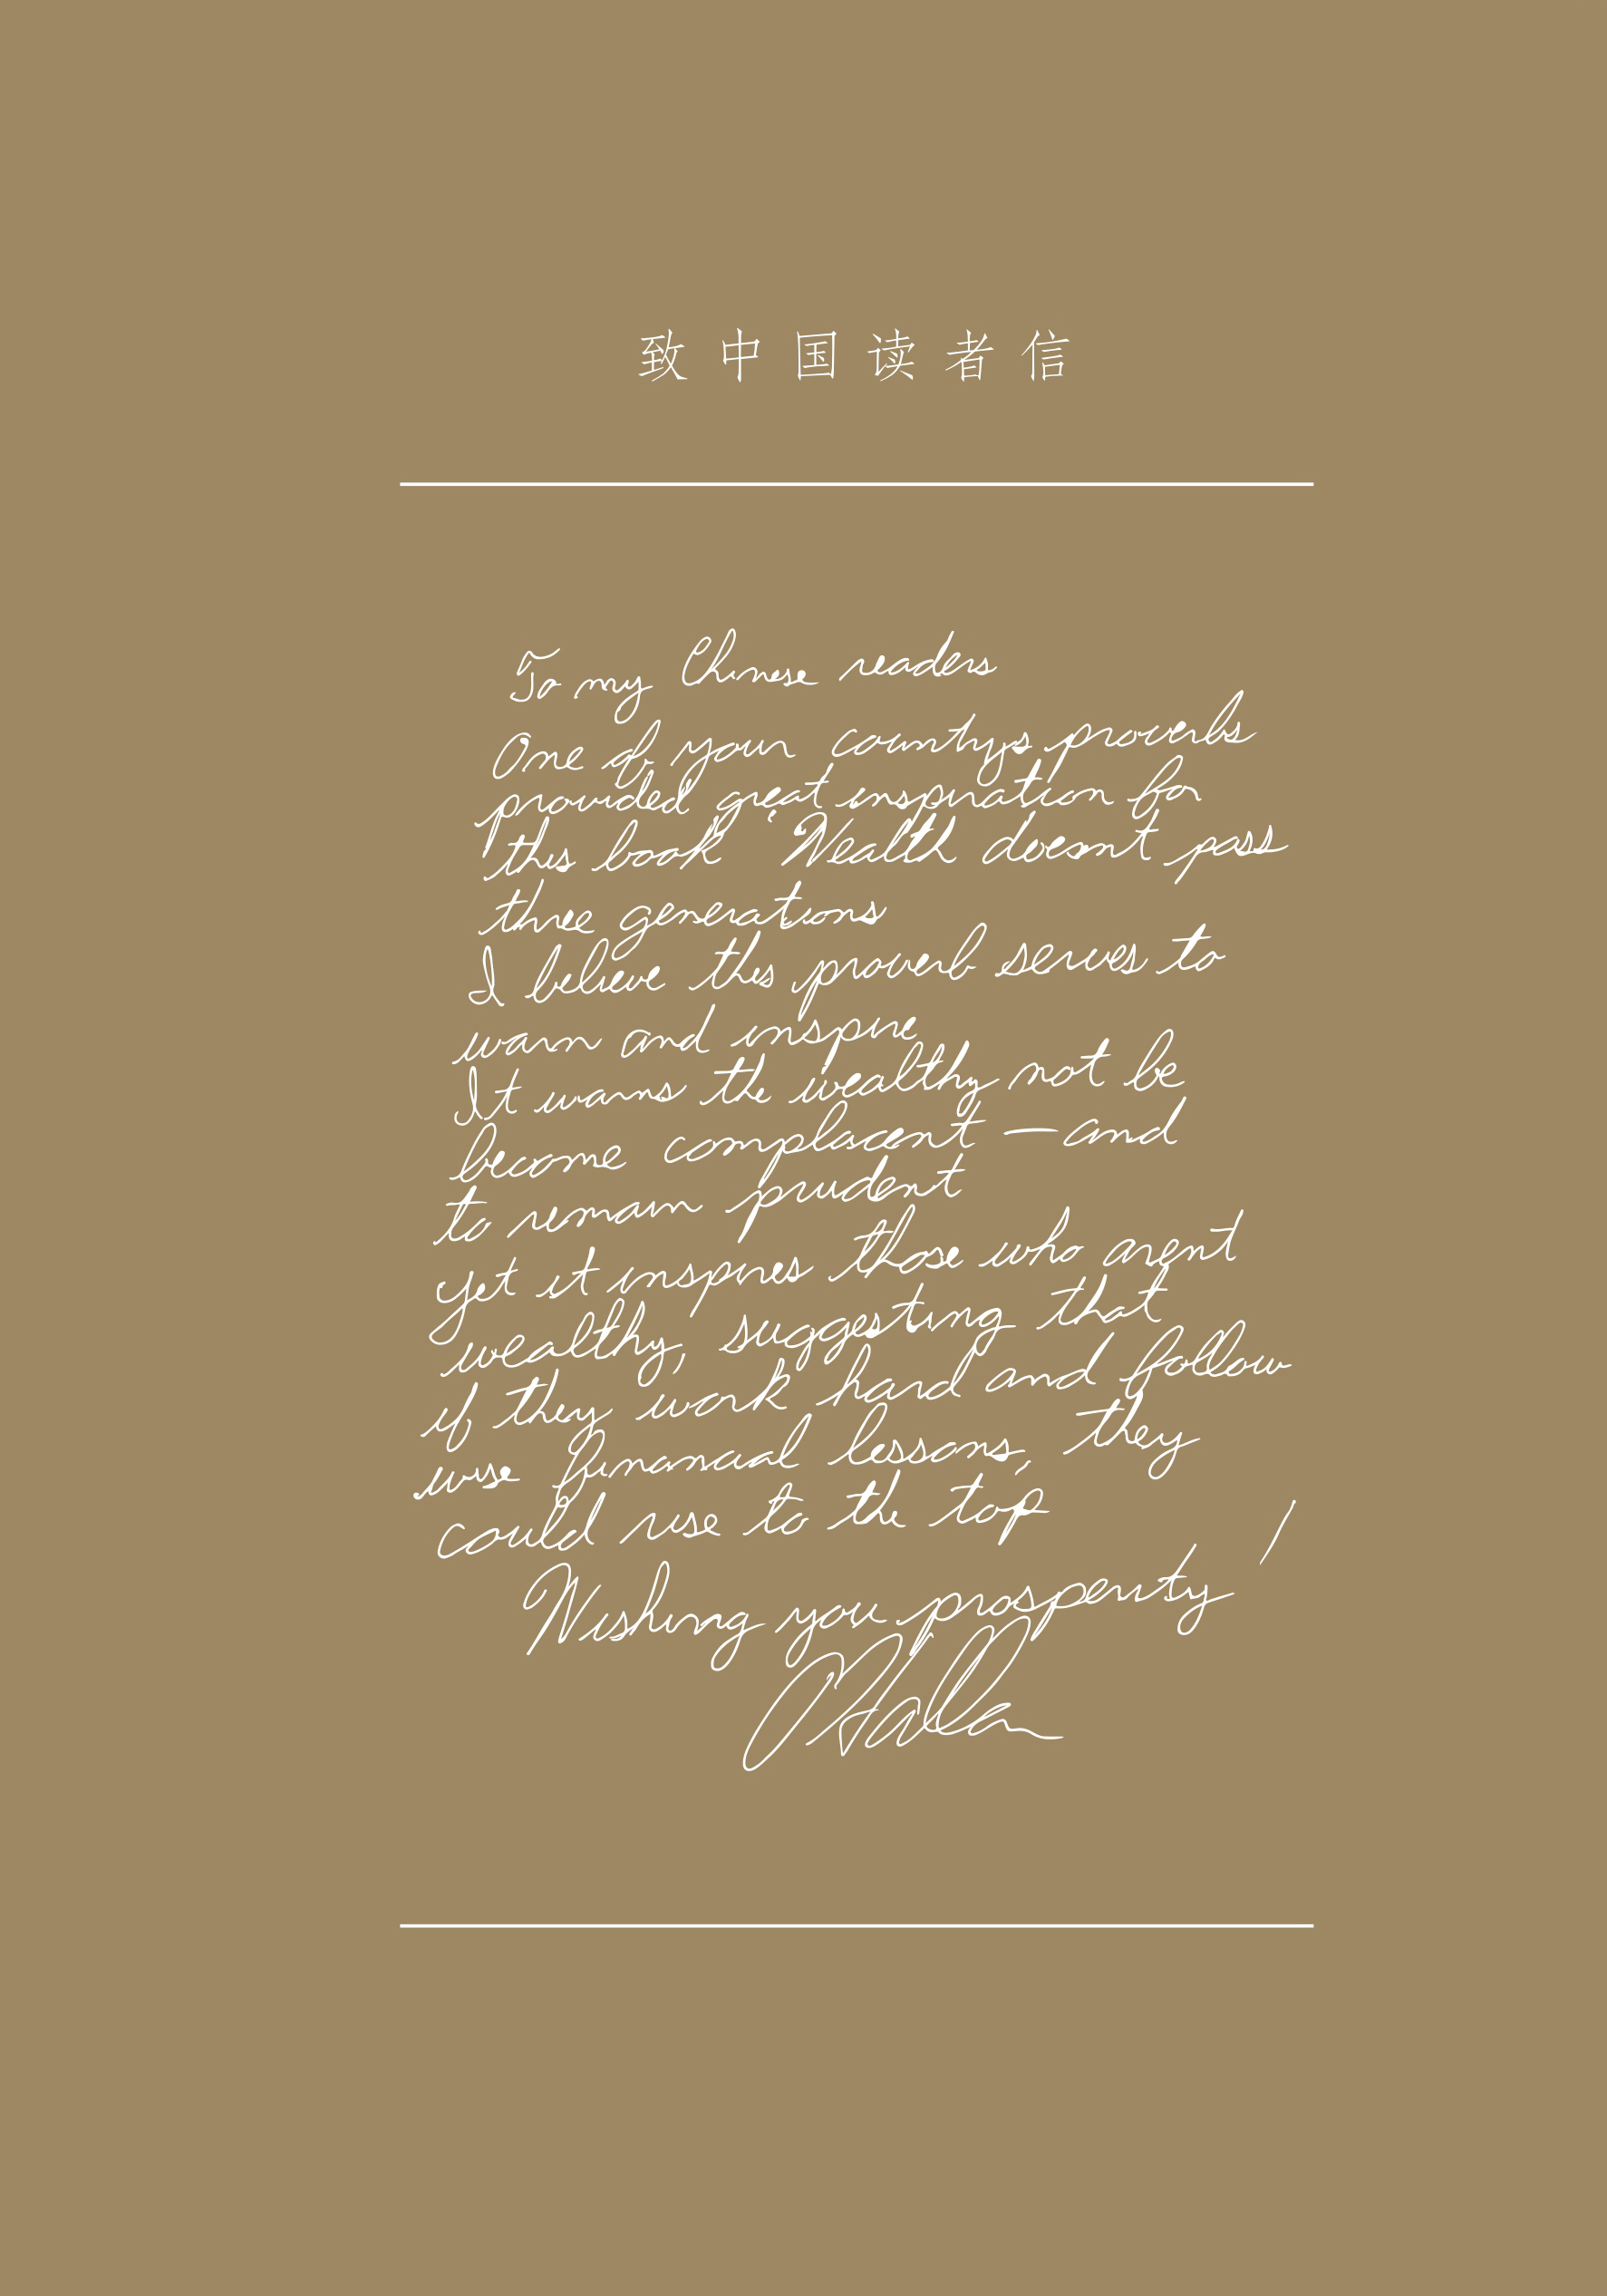 致中国读者信
To my Chinese readers
One of your country's proverbs
provided great inspiration for
this book "Wealth doesn't pass
three generations
I believe this proverb serves to
warn and inspire
It warns the wealthy not be
become complacent — and
to remain prudent
yet it inspires those who aren't
wealthy, suggesting that
if they work hard and follow
wise financial lessons, they
could rise to the top
Wishing you prosperity!